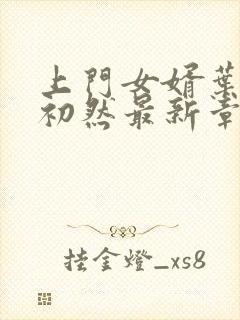 上門女婿葉
初然最新章
挂金燈_xs8